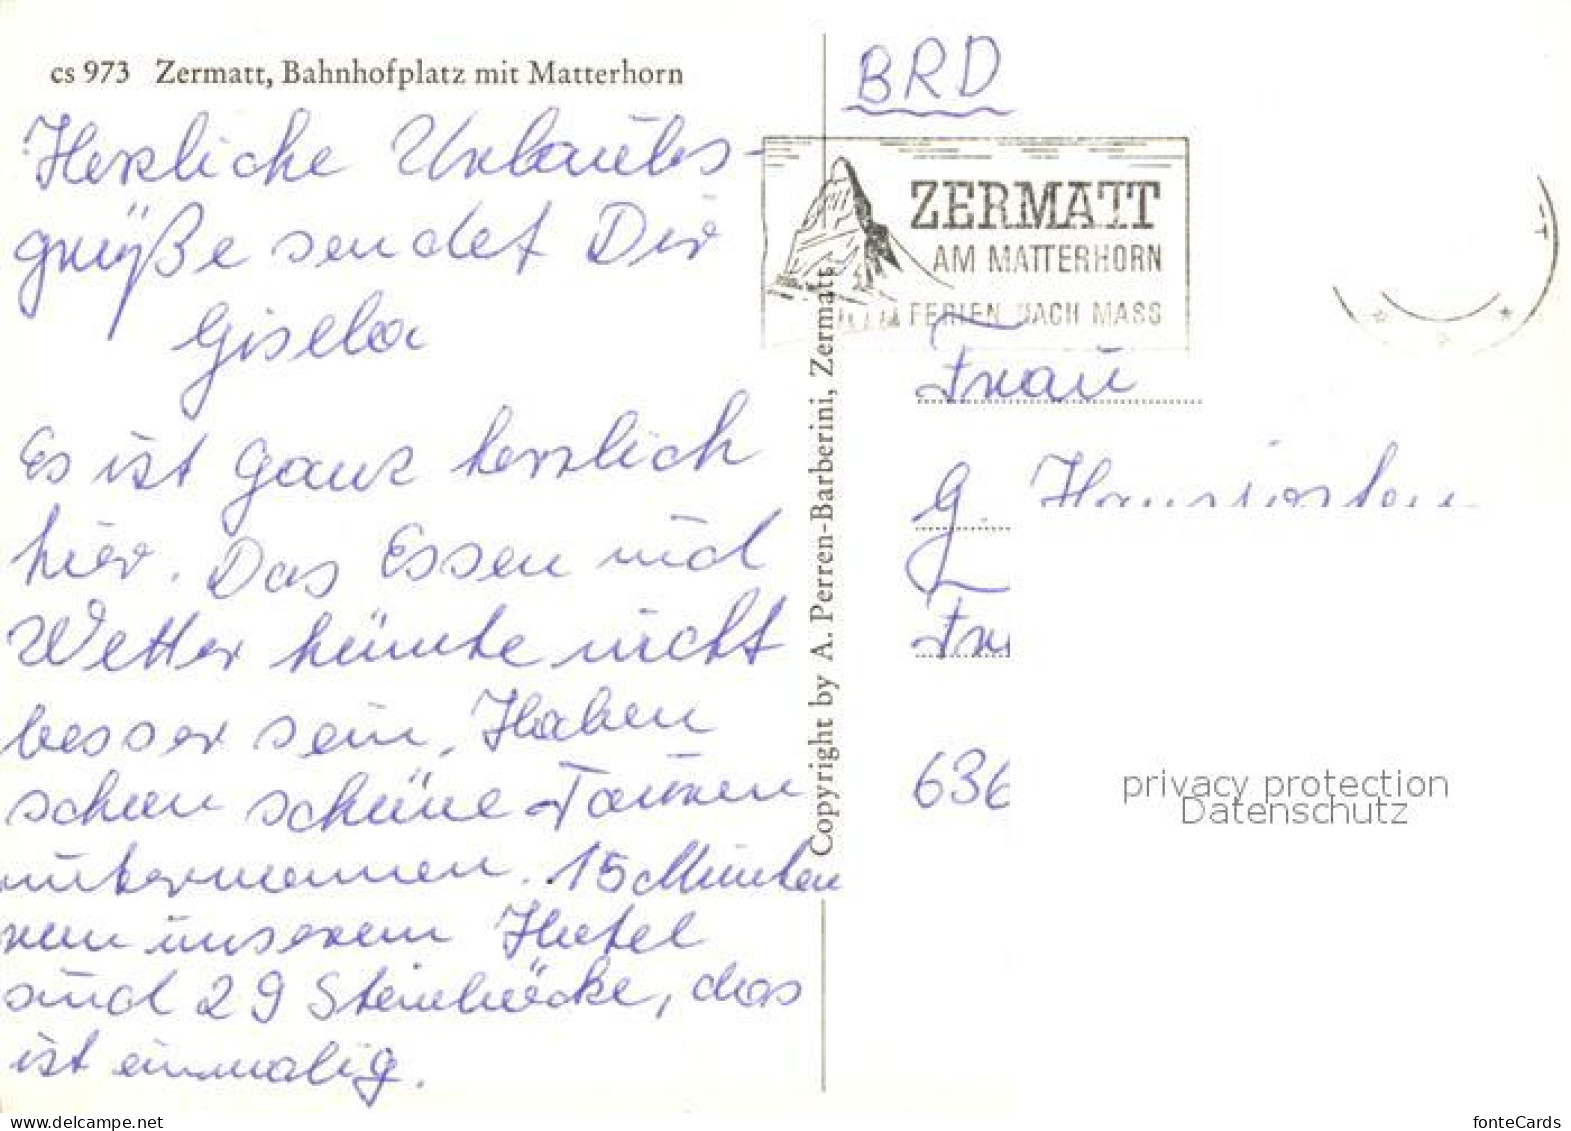 cs 973 Zermatt, Bahnhofplatz mit Matterhorn
Herzliche Urlaubs-
grüße sendet Dir
Gisela
Es ist ganz herrlich
hier. Das Essen und
Wetter könnte nicht
besser sein. Haben
schon schöne Touren
unternommen. 15 Minuten
von unserem Hotel
sind 29 Steinböcke, das
ist einmalig.
Copyright by A. Perren-Barberini, Zermatt
BRD
ZERMATT
AM MATTERHORN
FERIEN NACH MASS
Frau
G.
636
privacy protection
Datenschutz
www.delcampe.net
fonteCards